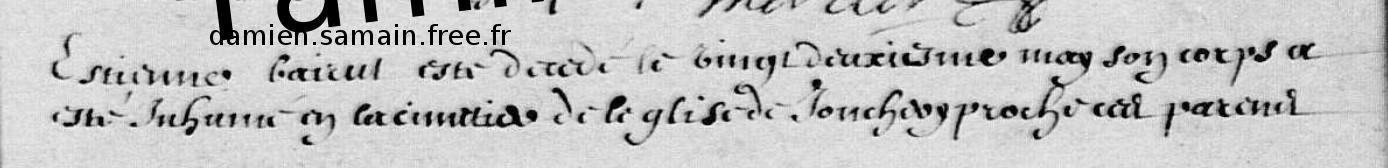 damien.samain.free.fr
Estienne baicul este decedé le vingt deuxiesme may son corps a
esté Inhumé en la cimetier de leglise de Jonchery proche ces parens